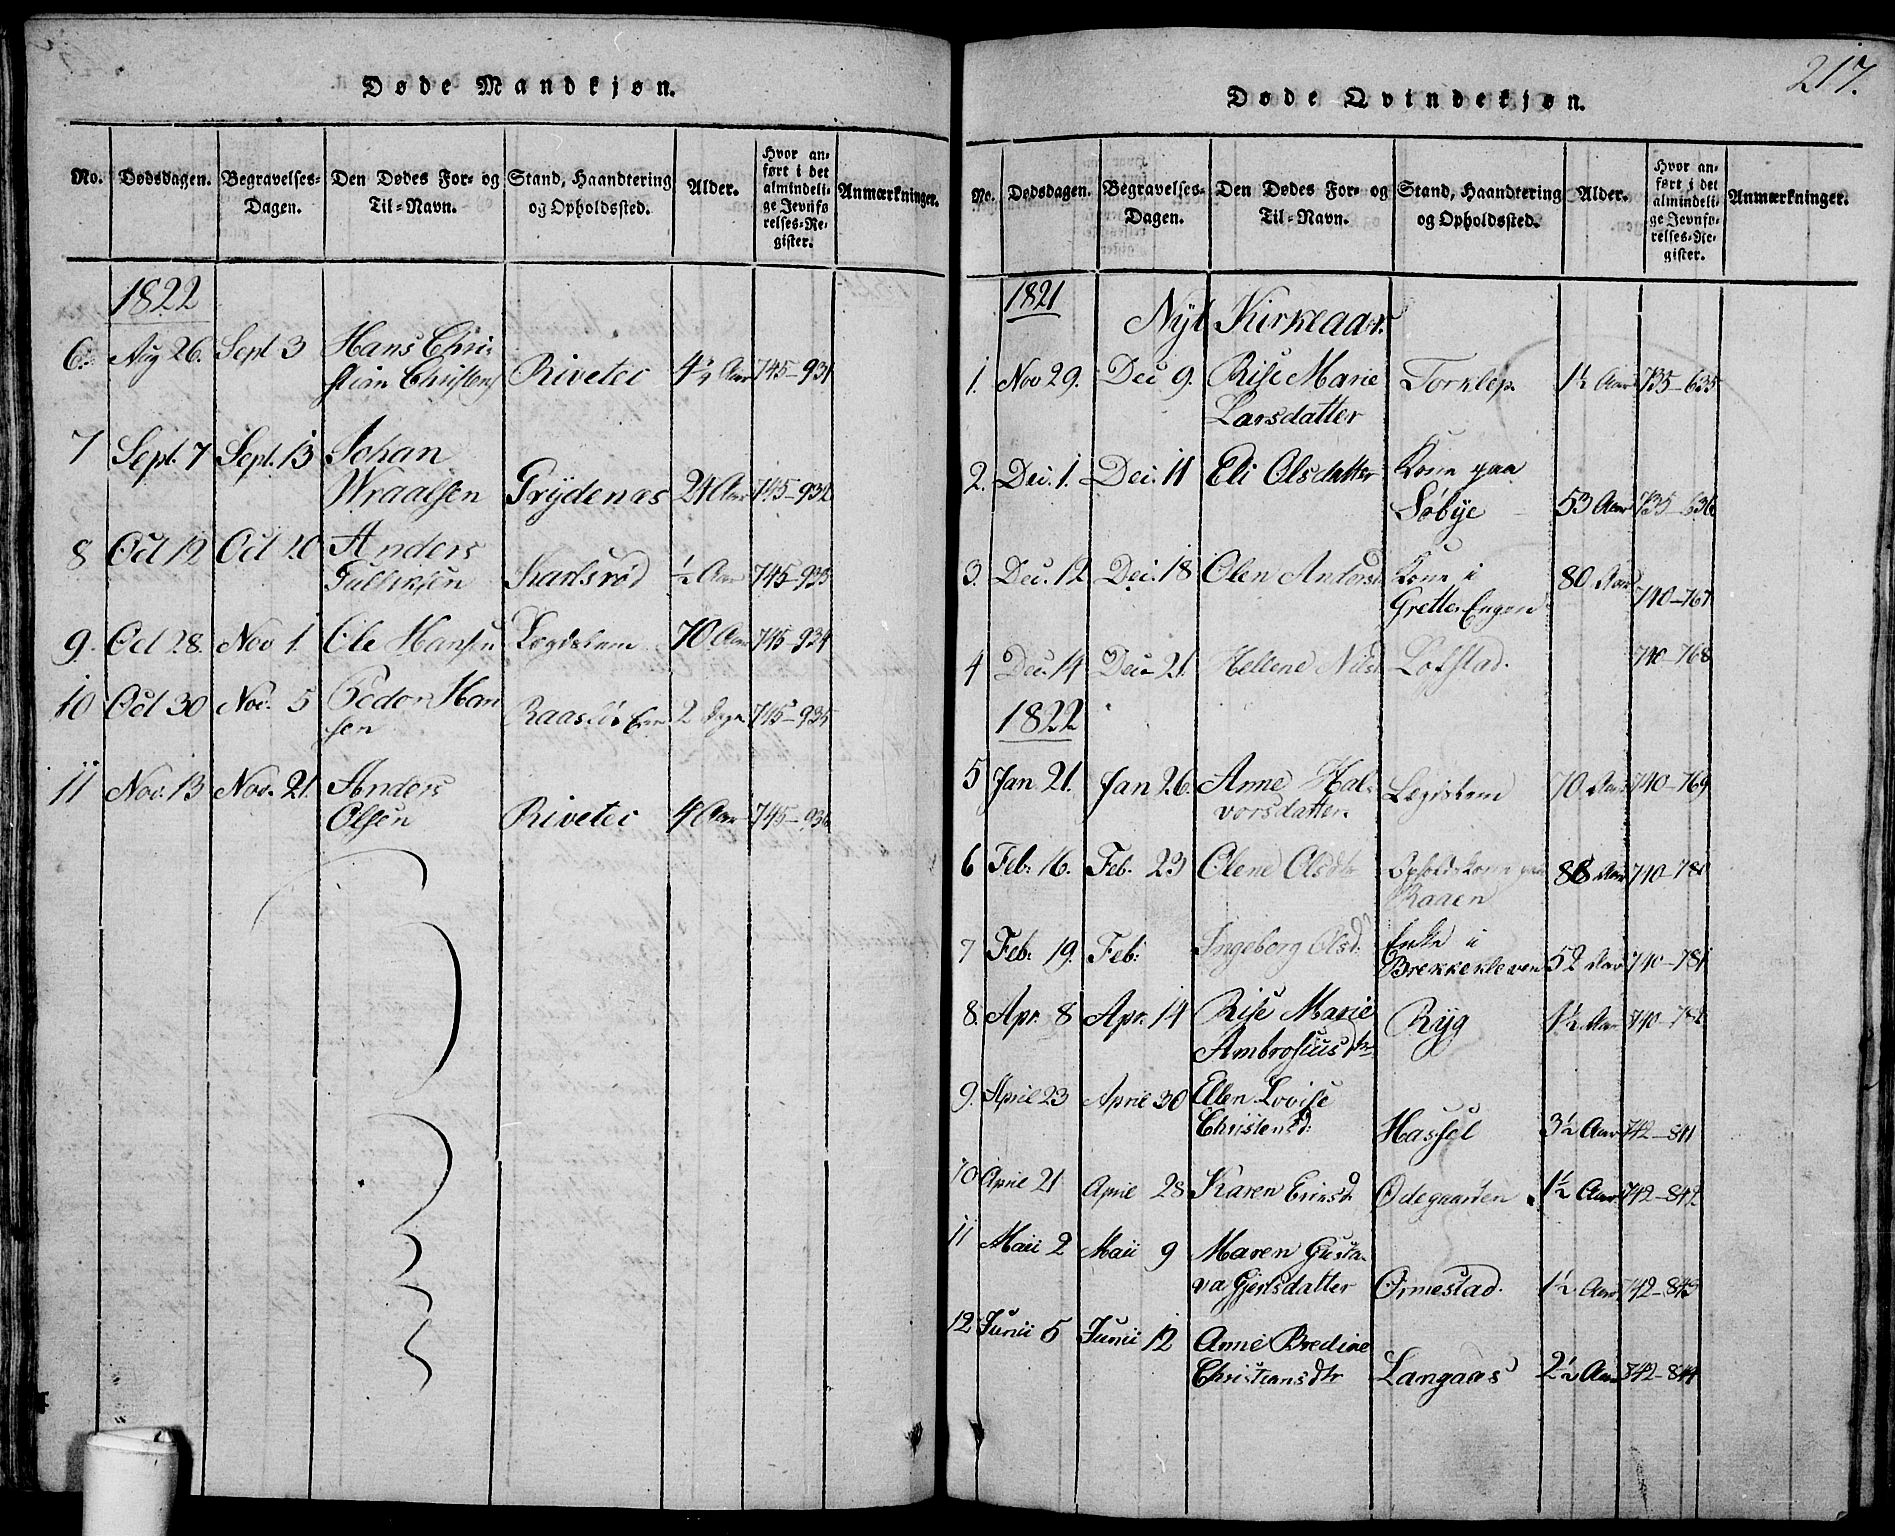 217.
Døde Mandkjøn.
No. Dødsdagen. Begravelses-Dagen. Den Dødes For- og Til-Navn. Stand, Haandtering og Opholdssted. Alder. Hvor anført i det almindelige Jevnførelses-Register. Anmærkninger.
1822
6. Aug 26. Sept 3 Hans Chri-
stian Christens Rivetei 4½ Aar 745-931
7 Sept. 7 Sept. 13 Johan
Wraalsen Grydenæs 24 Aar 745-932
8 Oct 12 Oct 20 Anders
Gulliksen Karlsrød ½ Aar 745-933
9. Oct 28. Nov 1. Ole Hansen Lægdslem 70 Aar 745-934
10 Oct 30 Nov. 5 Peder Han
sen 2 Dage 745-935
11 Nov. 13 Nov. 21. Anders
Olsen Rivetei 4 Aar 745-936
Døde Qvindekjøn.
No. Dødsdagen. Begravelses-Dagen. Den Dødes For- og Til-Navn. Stand, Haandtering og Opholdssted. Alder. Hvor anført i det almindelige Jevnførelses-Register. Anmærkninger.
1821
Nyt Kirkeaar.
1. Nov 29. Dec 9. Rise Marie Torklep 1½ Aar 735-635
Larsdatter
2. Dec. 1. Dec. 11 Eli Olsdatter Kone paa
Søbye 53 Aar 735-636
3. Dec. 12 Dec. 18 Olen Andersd Kone i 80 Aar
Gretter Engen 740-767
4 Dec. 14 Dec 21. Hellene Nilsd Lofstad. 740-768
1822
5 Jan 21. Jan 26. Anne Hal-
vorsdatter. Lægislem 70 Aar 740-769
6 Feb. 16. Feb. 23 Olene Olsdtr Opholdskone paa 88 Aar 740-780
Raaen
7 Feb. 19. Feb. Ingeborg Olsd. Enke i
Brekkekleven 52 Aar 740-781
8. Apr. 8 Apr. 14 Rise Marie Ryg 1½ Aar 740-782
Ambrosiusdtr
9. April 23 April 30 Ellen Lovise
Christensd. Hassel 3½ Aar 742-841
10 April 21 April 28 Karen Ericsd. Ødegaarden 1½ Aar 742-842
11 Maii 2 Maii 9 Maren Gusta-
va Gjertsdatter Ormestad. 1½ Aar 742-843
12 Junii 5 Junii 12 Anne Bredine
Christiansdtr Langaas 2½ Aar 742-844